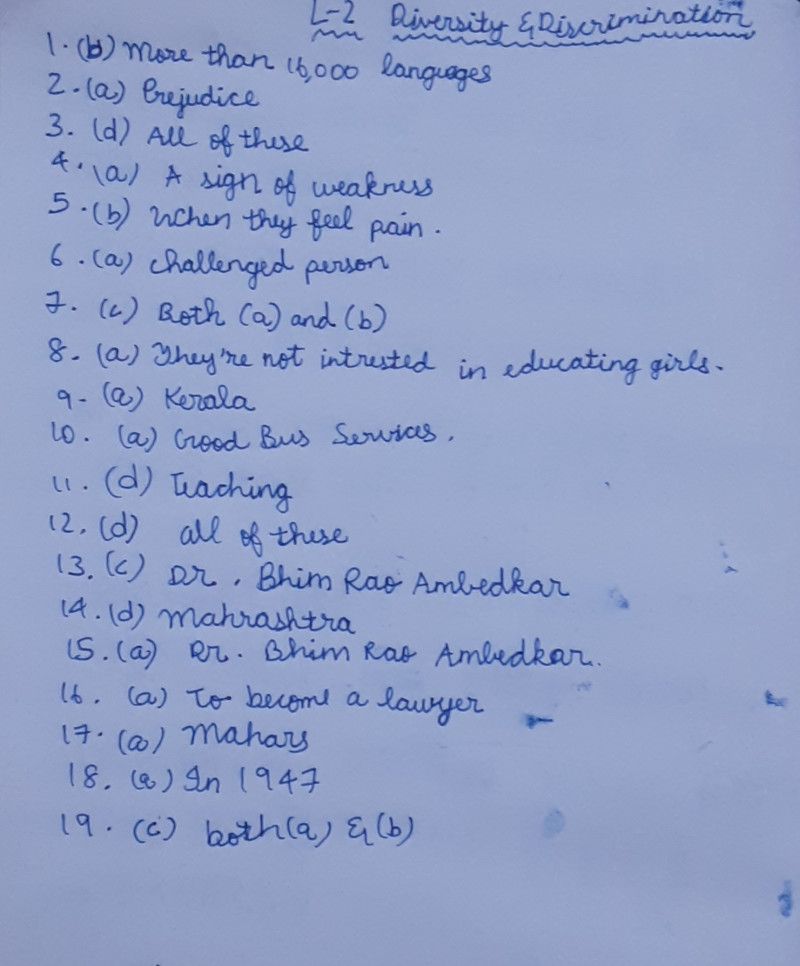 L-2 Diversity & Discrimination
1. (b) More than 16,000 languages
2. (a) Prejudice
3. (d) All of these
4. (a) A sign of weakness
5. (b) When they feel pain.
6. (a) challenged person
7. (c) Both (a) and (b)
8. (a) They're not intrested in educating girls.
9- (a) Kerala
10. (a) Good Bus Services.
11. (d) Teaching
12. (d) all of these
13. (c) Dr. Bhim Rao Ambedkar
14. (d) Mahrashtra
15. (a) Dr. Bhim Rao Ambedkar.
16. (a) To become a lawyer
17. (a) Mahars
18. (a) In 1947
19. (c) both (a) & (b)